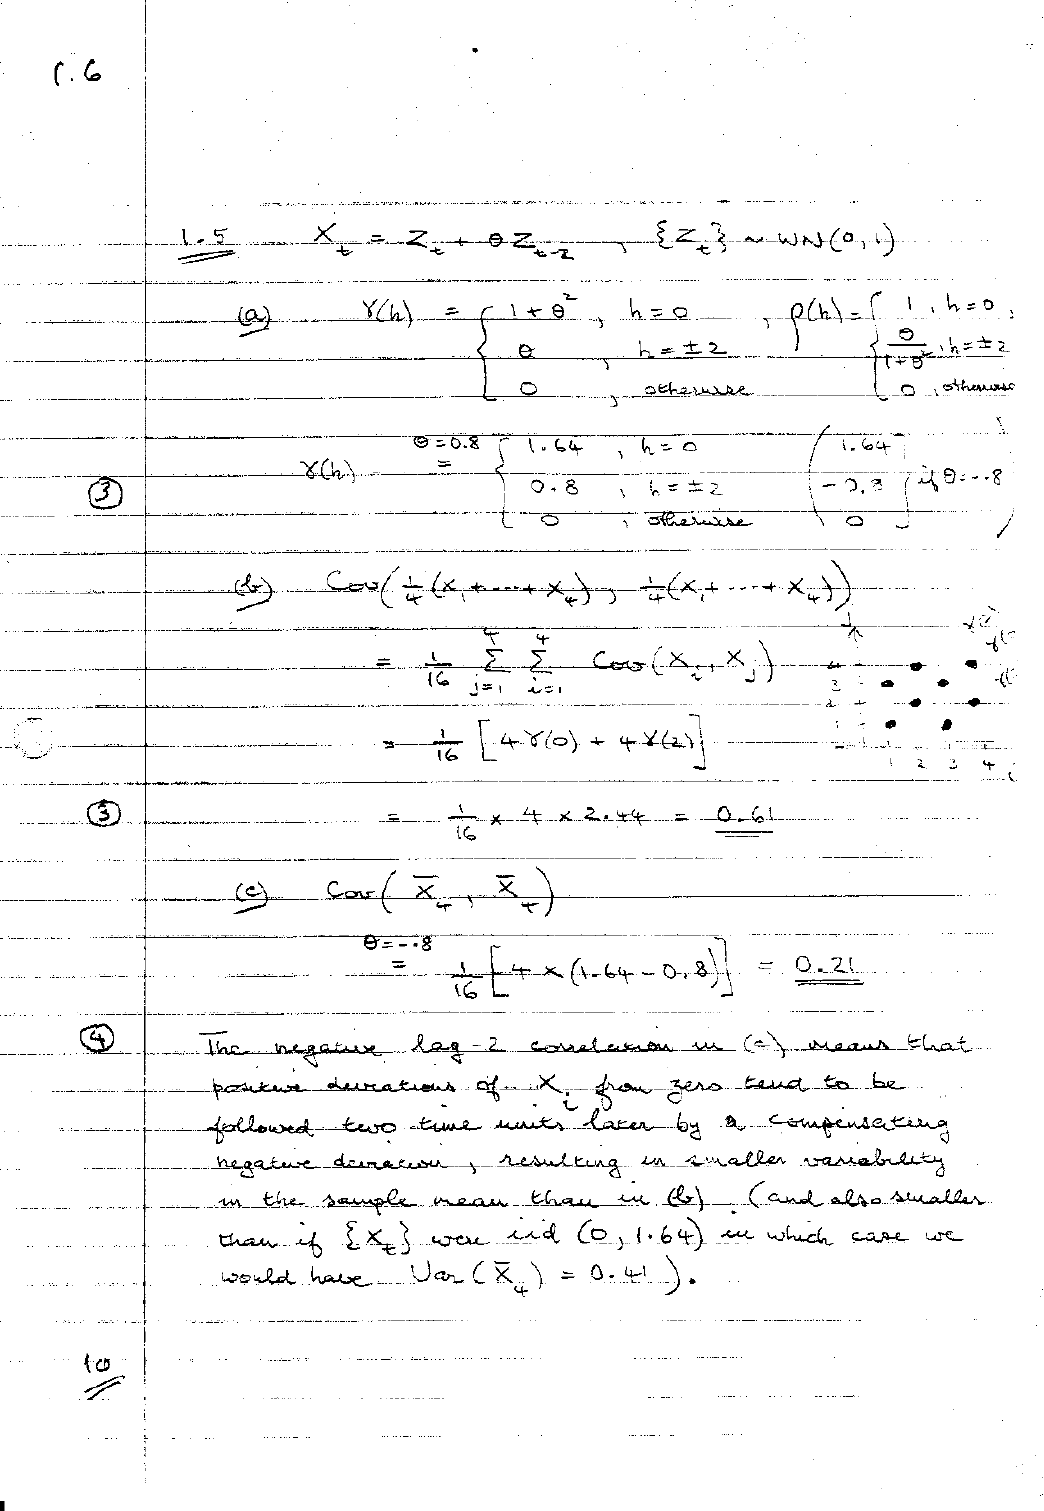 1.6
1.5 X_t = Z_t + θZ_{t-2} , {Z_t} ~ WN(0,1)
(a) γ(h) = { 1 + θ² , h = 0 , ρ(h) = { 1 , h = 0,
θ , h = ±2 θ/(1+θ²) , h = ±2
0 , otherwise 0 , otherwise
γ(h) θ=0.8 = { 1.64 , h = 0 ( 1.64
③ 0.8 , h = ±2 -0.8 } if θ = -.8
0 , otherwise 0 )
(b) Cov(¼(X_1 + ···· + X_4), ¼(X_1 + ··· + X_4))
= 1/16 Σ_{j=1}^4 Σ_{i=1}^4 Cov(X_i, X_j) 4
3
2
= 1/16 [4γ(0) + 4γ(2)] 1
1 2 3 4 i
③ = 1/16 × 4 × 2.44 = 0.61
(c) Cov(X̄_4, X̄_4)
θ=-.8 = 1/16 [4 × (1.64 - 0.8)] = 0.21
④ The negative lag-2 correlation in (c) means that
positive deviations of X_i from zero tend to be
followed two time units later by a compensating
negative deviation, resulting in smaller variability
in the sample mean than in (b). (and also smaller
than if {X_t} were iid (0, 1.64) in which case we
would have Var(X̄_4) = 0.41).
10